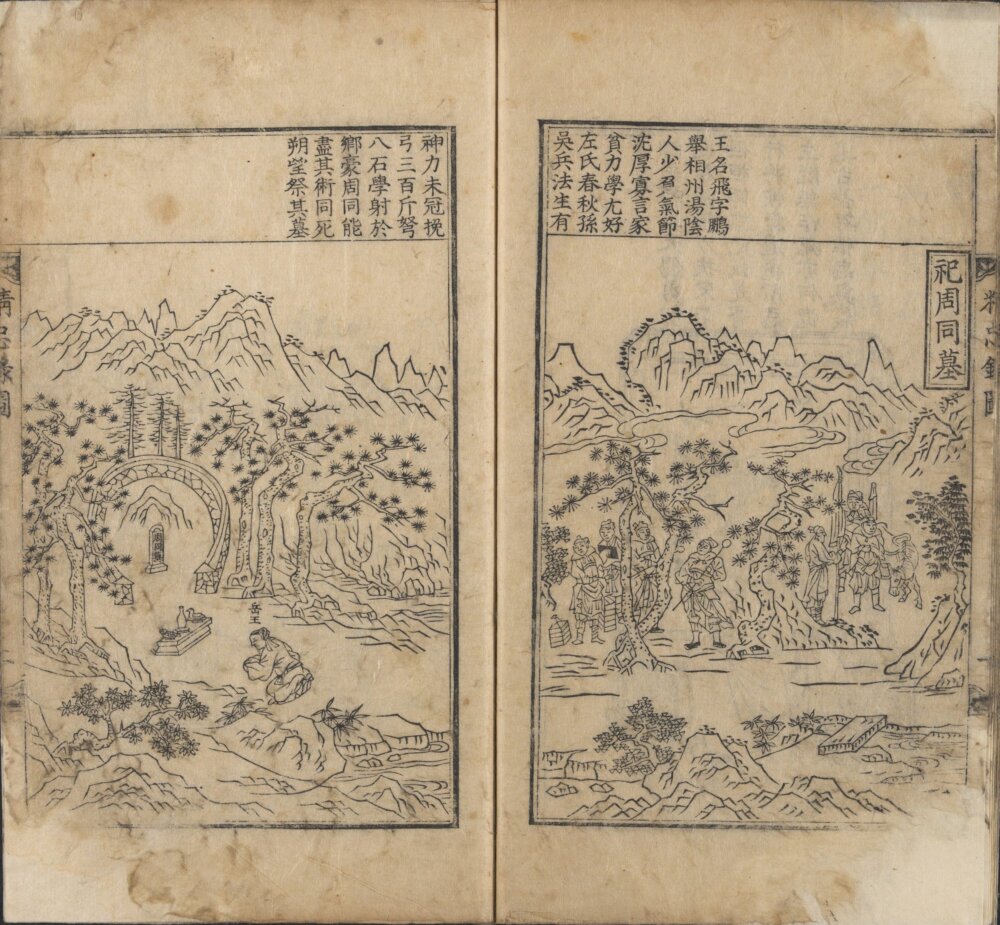 祀周同墓
王名飛字鵬
舉相州湯陰
人少負氣節
沈厚寡言家
貧力學尤好
左氏春秋孫
吳兵法生有
神力未冠挽
弓三百斤弩
八石學射於
鄉豪周同能
盡其術同死
朔望祭其墓
岳王
精忠錄圖
精忠錄圖